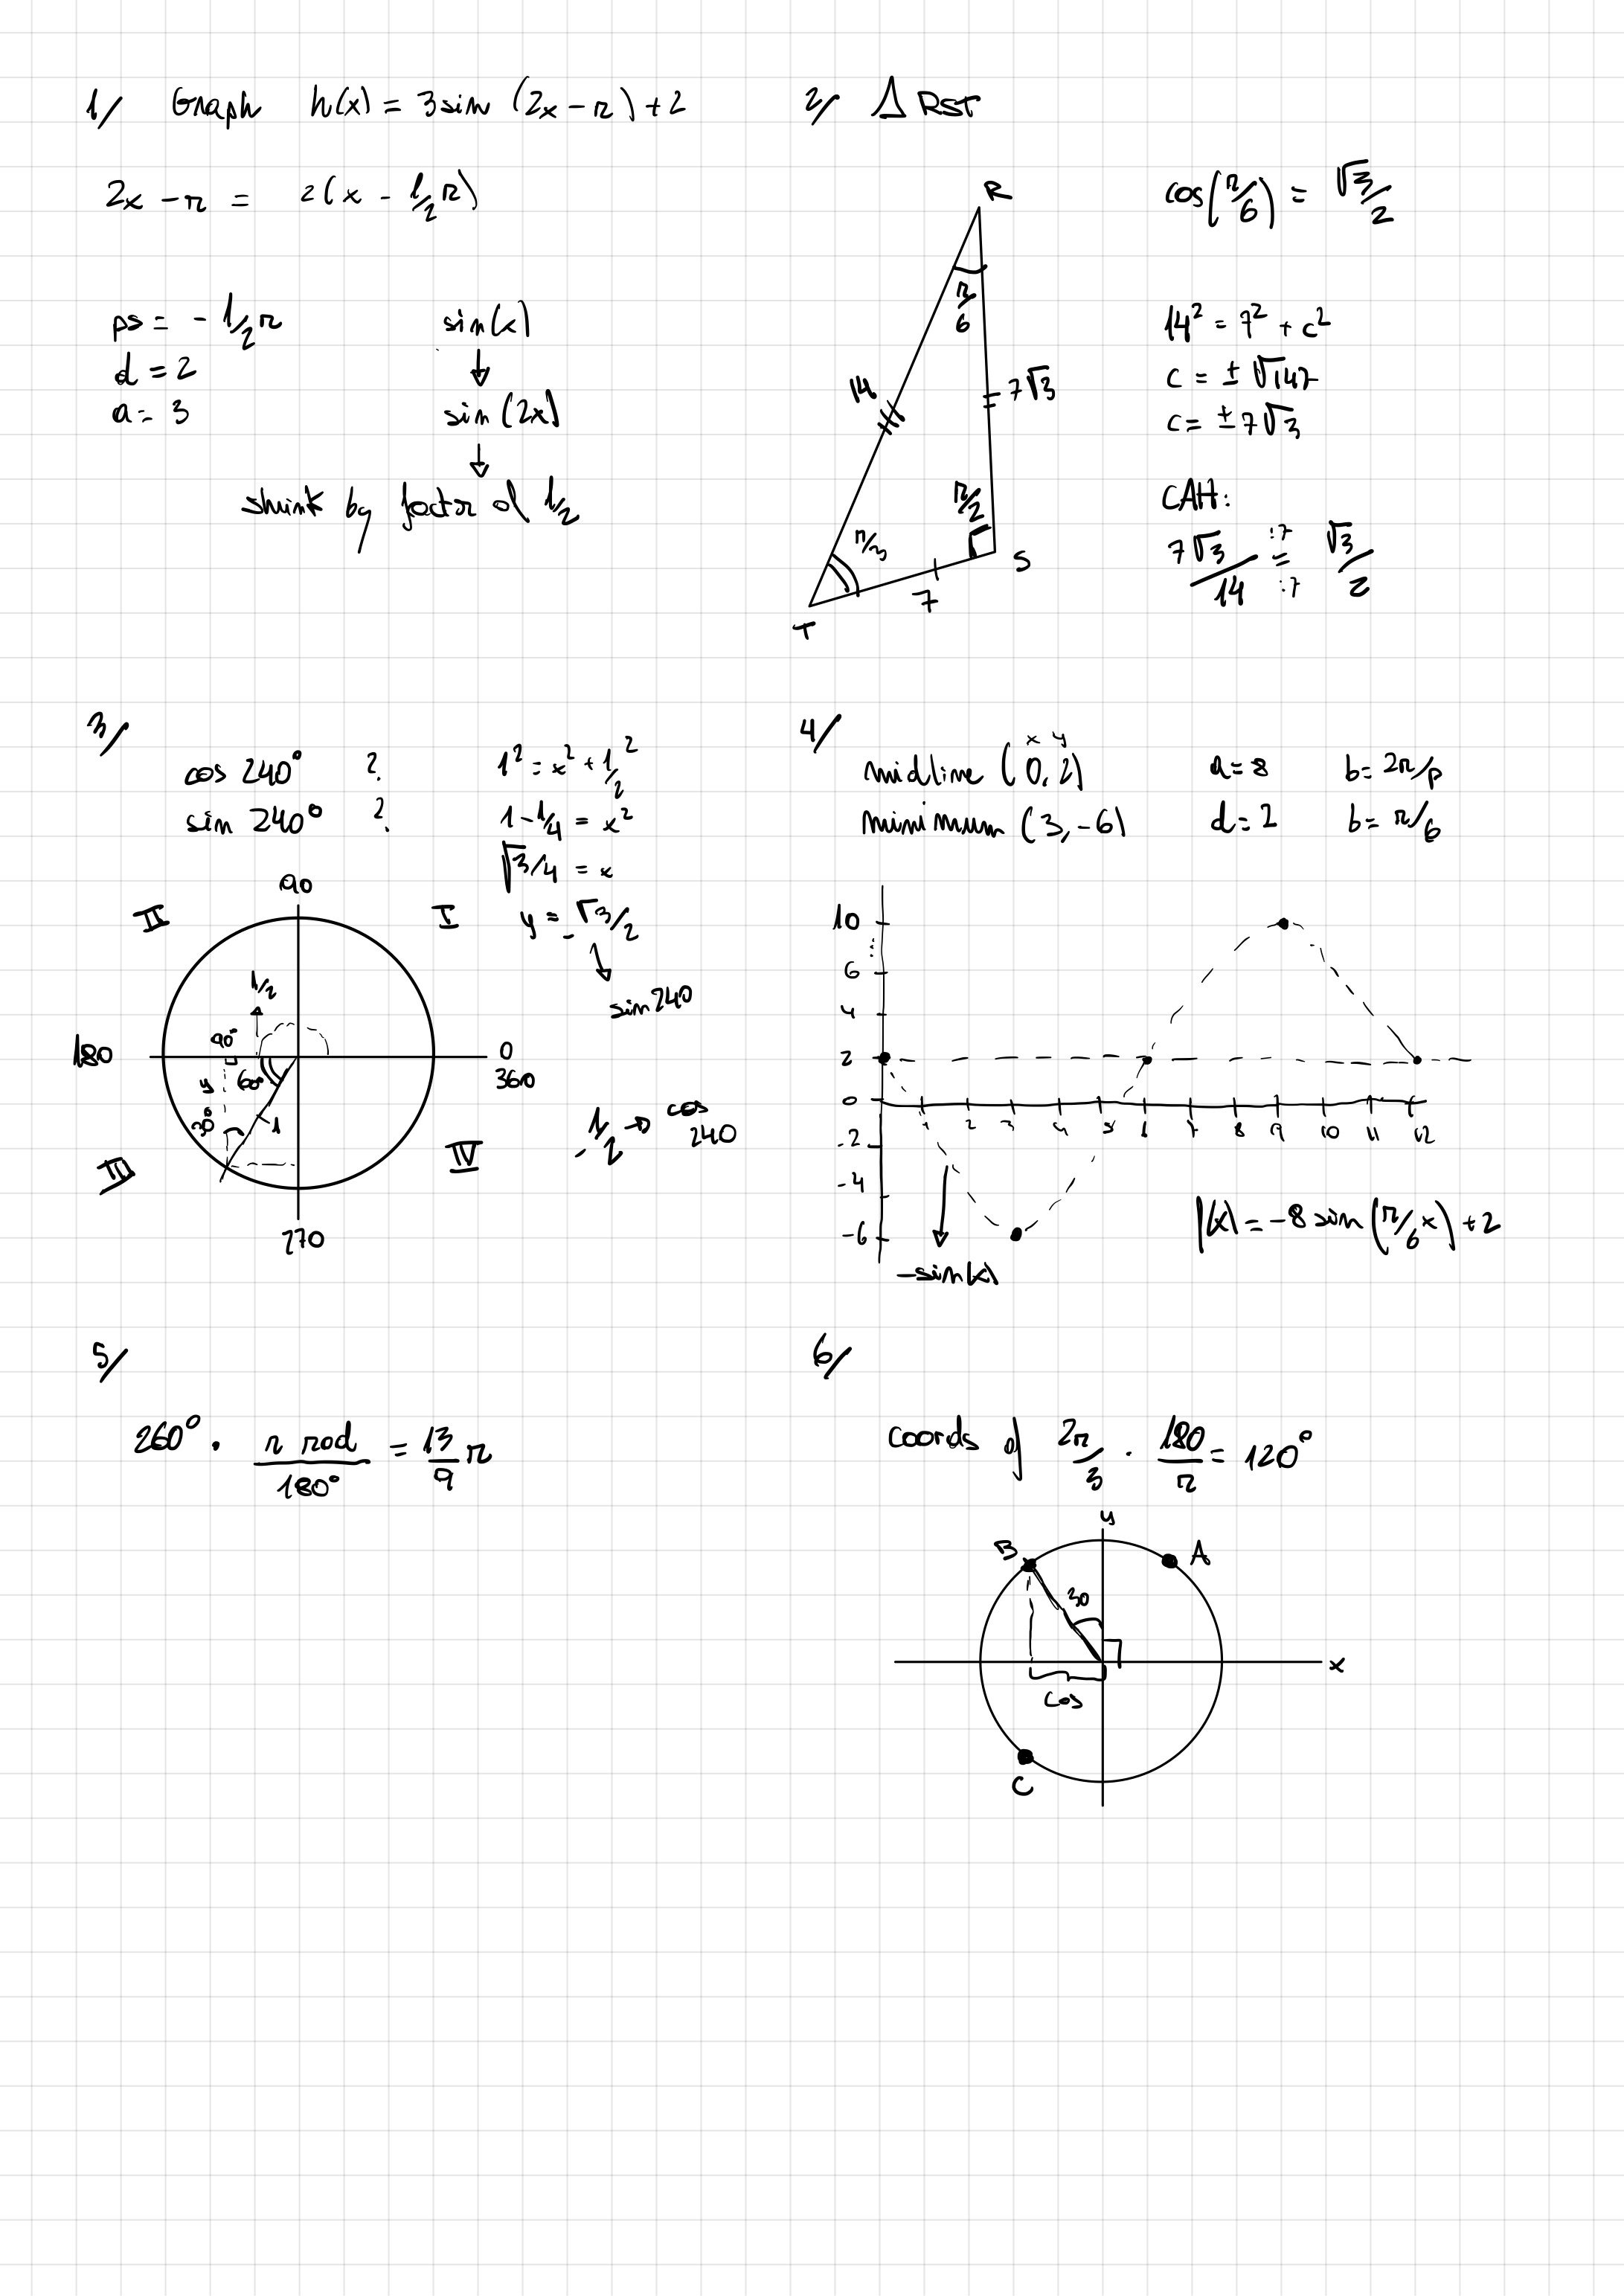 1/ Graph h(x) = 3 sin (2x - π) + 2
2x - π = 2(x - 1/2 π)
ps = - 1/2 π
d = 2
a = 3
sin(x)
↓
sin(2x)
↓
shrink by factor of 1/2
2/ Δ RST
R
π/6
14
7√3
π/2
π/3
S
7
T
cos(π/6) = √3/2
14² = 7² + c²
c = ± √147
c = ± 7√3
CAH:
7√3/14 :7 = :7 √3/2
3/
cos 240° ?
sin 240° ?
1² = x² + 1/2²
1 - 1/4 = x²
√3/4 = x
y = - √3/2
sin 240
90
II
I
1/2
90°
180
0
360
y
60°
30°
1
III
IV
270
- 1/2 → cos
240
4/
x y
midline (0, 2)
minimum (3, -6)
a = 8
d = 2
b = 2π/p
b = π/6
10
6
4
2
0
1 2 3 4 5 6 7 8 9 10 11 12
-2
-4
-6
-sin(x)
f(x) = -8 sin(π/6 x) + 2
5/
260° · π rad/180° = 13/9 π
6/
coords of 2π/3 · 180/π = 120°
y
B
A
30
x
cos
C